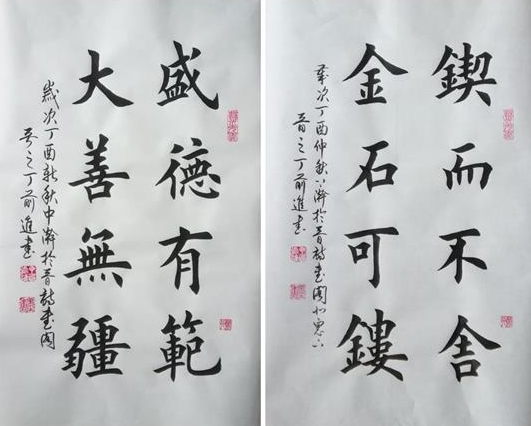 盛德有範
大善無疆
歲次丁酉新秋中澣於晋韵書閣
晋之丁前進書
鍥而不舍
金石可鏤
歲次丁酉仲秋下澣於晋韵書閣
晋之丁前進書